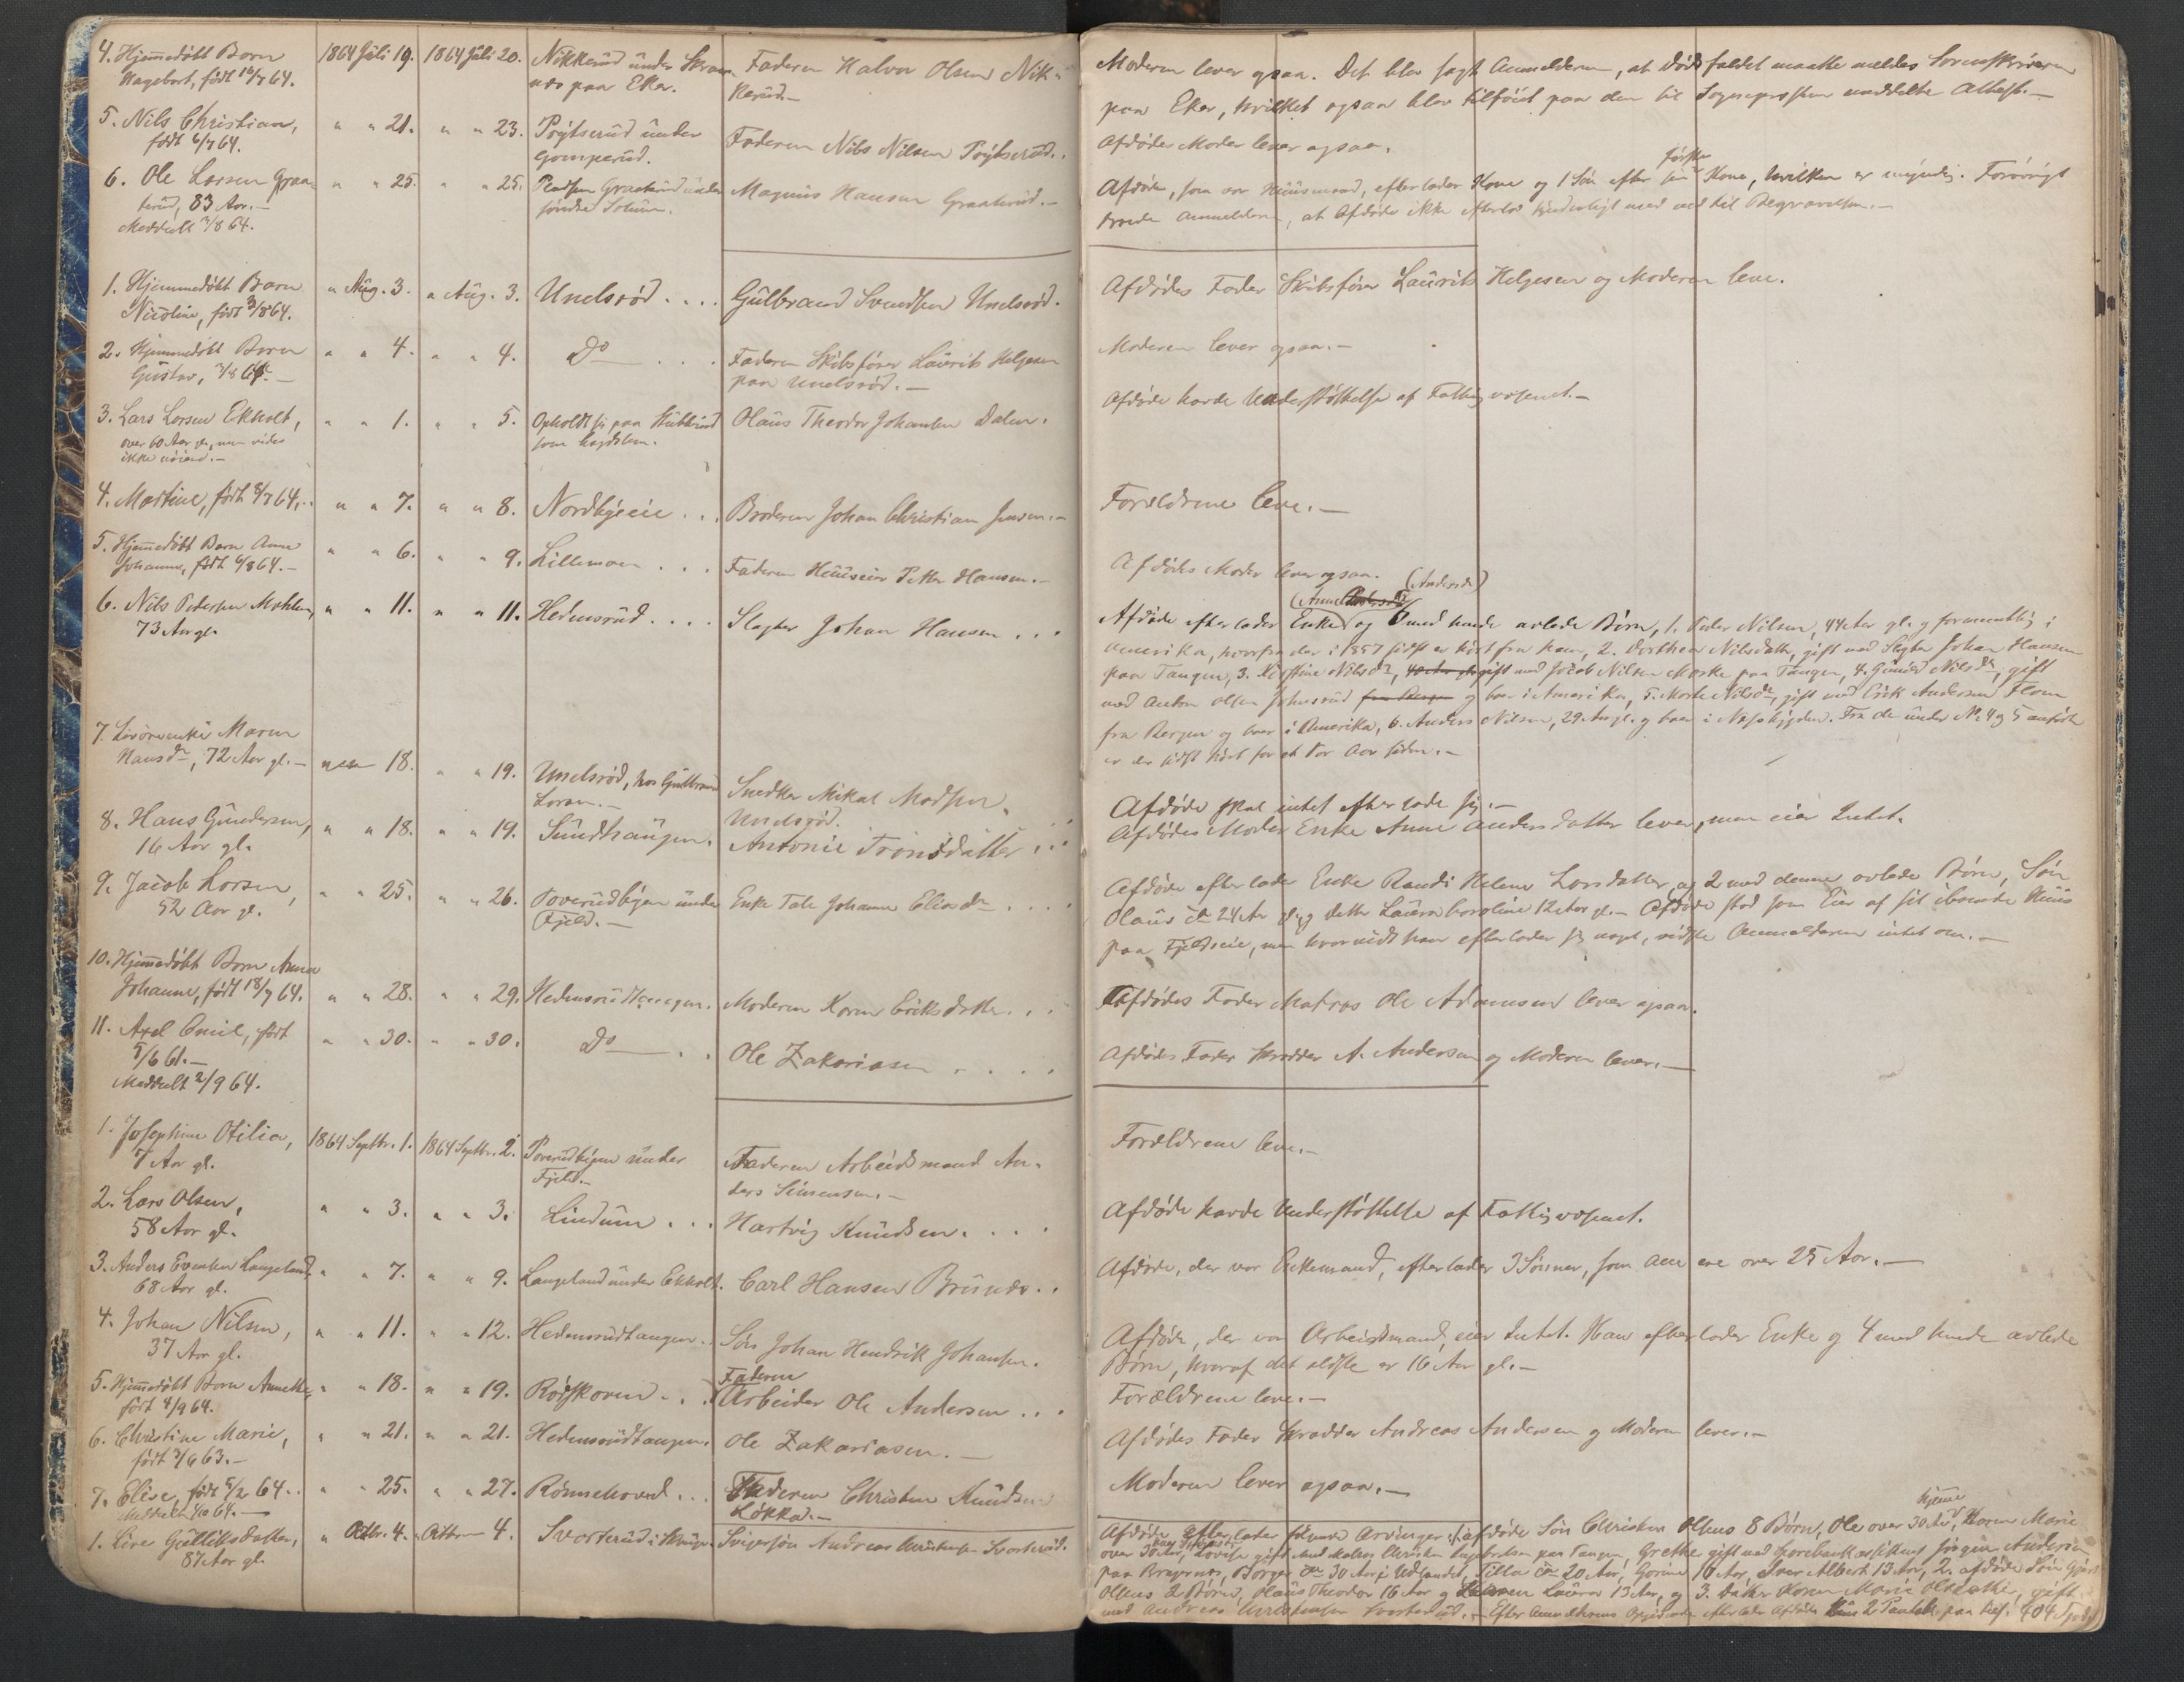 4. Hjemmedøbt Barn 1864 Juli 19. 1864 Juli 20. Nikkerud under Skram- Faderen Halvor Olsen Nik- Moderen lever ogsaa. Det blev sagt Anmelderen, at Dødsfaldet maatte meldes Sorenskriveren
Hagebart, født 10/7 64. næs paa Eker. kerud.- paa Eker, hvilket ogsaa blev tilføiet paa den til Sognepresten meddelte Attest.-
5. Nils Christian, " " 21. " " 23. under Faderen Nils Nilsen Afdødes Moder lever ogsaa.
født 6/7 64. Gomperud.
6. Ole Larsen Graa- " " 25. " " 25. Pladsen Graaterud under Magnus Hansen Graaterud.- Afdøde, som var Huusmand, efterlader Kone og 1 Søn efter sin første Kone, hvilken er myndig. Forøvrigt
terud, 83 Aar.- søndre Solum. troede Anmelderen, at Afdøde ikke efterlod synderligt mere end til Begravelsen.-
Meddeelt 3/8 64.
1. Hjemmedøbt Barn " Aug. 3. " Aug. 3. Unelsrød . . . . Gulbrand Svendsen Unelsrød. Afdødes Fader Skibsfører Laurits Helgesen og Moderen leve.
Nicoline, født 3/8 64.
2. Hjemmedøbt Barn " " 4. " " 4. Do . . . Faderen Skibsfører Laurits Helgesen Moderen lever ogsaa.-
Gustav, 3/8 64.- paa Unelsrød.-
3. Lars Larsen Ekholt, " " 1. " " 5. Opholdt sig paa Stubberud Olaus Theodor Johansen Dalen. Afdøde havde Understøttelse af Fattigvæsenet.-
over 60 Aar gl., men vides som Lægdslem.
ikke nøiere.-
4. Martine, født 8/7 64. . . " " 7. " " 8. Nordbyeie . . . Broderen Johan Christian Jensen.- Forældrene leve.-
5. Hjemmedøbt Barn Anne " " 6. " " 9. Lillemoen . . . Faderen Huuseier Petter Hansen.- Afdødes Moder lever ogsaa.
Johanne, født 6/8 64.-
(Andersdr)
6. Nils Pedersen Mohlen, " " 11. " " 11. Hedensrud . . . . Slagter Johan Hansen . . . Afdøde efterlader Enke (Anne og 6 med hende avlede Børn, 1. Peder Nilsen, 44 Aar gl. og formentlig i
73 Aar gl. Amerika, hvorfra der i 1857 sidst er hørt fra ham, 2. Dorthea Nilsdatter, gift med Slagter Johan Hansen
paa Tangen, 3. Kirstine Nilsdr, gift med Jacob Nilsen Moske paa Tangen, 4. Gunild Nilsdr, gift
med Anton Olsen Johnsrud og boer i Amerika, 5. Marte Nilsdr, gift med Erik Andersen Flom
fra Bergen og boer i Amerika, 6. Anders Nilsen, 29 Aar gl. og boer i Næsbygden. Fra de under No 4 og 5 anførte
er der sidst hørt for et Par Aar siden.-
7. Maren
Hansdr, 72 Aar gl.- 18. " " 19. Unelsrød, hos Gulbrand Snedker Mikal Madsen Afdøde skal intet efterlade sig.-
Larsen.- Unelsrød.
8. Hans Gundersen, " " 18. " " 19. Sundhaugen. Antonie Tronsdatter . . . Afdødes Moder Enke Anne Andersdatter lever, men eier Intet.
16 Aar gl.
9. Jacob Larsen, " " 25. " " 26. Toverudbyen under Enke Tale Johanne Eliasdr . . . . Afdøde efterlader Enke Randi Helene Larsdatter og 2 med denne avlede Børn, Søn
52 Aar gl. Fjeld.- Olaus ca 24 Aar gl. og Datter Laura Caroline 12 Aar gl.- Afdøde stod som Eier af sit iboende Huus
paa Fjeldseie, men hvorvidt han efterlader sig noget, vidste Anmelderen intet om.-
10. Hjemmedøbt Barn Anna
Johanne, født 18/7 64. " " 28. " " 29. Hedensrudtangen. Moderen Karen Eriksdatter . . . Afdødes Fader Matros Ole Adamsen lever ogsaa.
11. Axel Emil, født " " 30. " " 30. Do . . Ole Zakariasen . . . . Afdødes Fader Skrædder A. Andersen og Moderen lever.-
5/6 61.-
Meddeelt 2/9 64.
1. Josephine Otilia, 1864 Septbr. 1. 1864 Septbr. 2. Toverudbyen under Faderen Arbeidsmand An- Forældrene leve.-
7 Aar gl. Fjeld.- ders Simensen.-
2. Lars Olsen, " " 3. " " 3. Lindum . . . Hartvig Knudsen . . . . Afdøde havde Understøttelse af Fattigvæsenet.
58 Aar gl.
3. Anders Evensen Langeland, " " 7. " " 9. Langeland under Ekholt. Carl Hansen Brunæs . . Afdøde, der var Enkemand, efterlader 3 Sønner, som alle ere over 25 Aar.-
68 Aar gl.
4. Johan Nilsen, " " 11. " " 12. Hedensrudtangen . . Søn Johan Hendrik Johansen. Afdøde, der var Arbeidsmand, eier Intet. Han efterlader Enke og 4 med hende avlede
37 Aar gl. Børn, hvoraf det ældste er 16 Aar gl.-
5. Hjemmedøbt Barn Annette, " " 18. " " 19. Rødskoven . . . Faderen Arbeider Ole Andersen . . . Forældrene leve.-
født 4/9 64.
6. Christine Marie, " " 21. " " 21. Hedensrudtangen. Ole Zakariasen.- Afdødes Fader Skrædder Andreas Andersen og Moderen lever.-
født 3/6 63.-
7. Elise, født 5/2 64 . . " " 25. " " 27. Rønnehoved . . . Faderen Christen Knudsen Moderen lever ogsaa.-
Meddeelt 4/10 64.- Løkka.-
1. Live Gulliksdatter, " Octbr. 4. Octbr 4. Svarterud i Skouger. Svigersøn Andreas Christensen Svarterud. Afdøde efterlader følgende Arvinger: 1. afdøde Søn Christen Olsens 8 Børn, Ole over 30 Aar, hjemme, Karen Marie
87 Aar gl. over 30 Aar, Lovise gift med Christen paa Tangen, Grethe gift med Jørgen Andersen
paa Bragernæs, Borger ca 30 Aar, i Udlandet, Silla ca 20 Aar, Gorine 16 Aar, Iver Albert 13 Aar, 2. afdøde Søn
Olsens 2 Børn, Olaus Theodor 16 Aar og Laura 13 Aar, og 3. Datter Karen Marie Olsdatter, gift
med Andreas Christensen Svarterud.- Efter Anmelderens Opgivende efterlader Afdøde 2 paa 404 Spd.